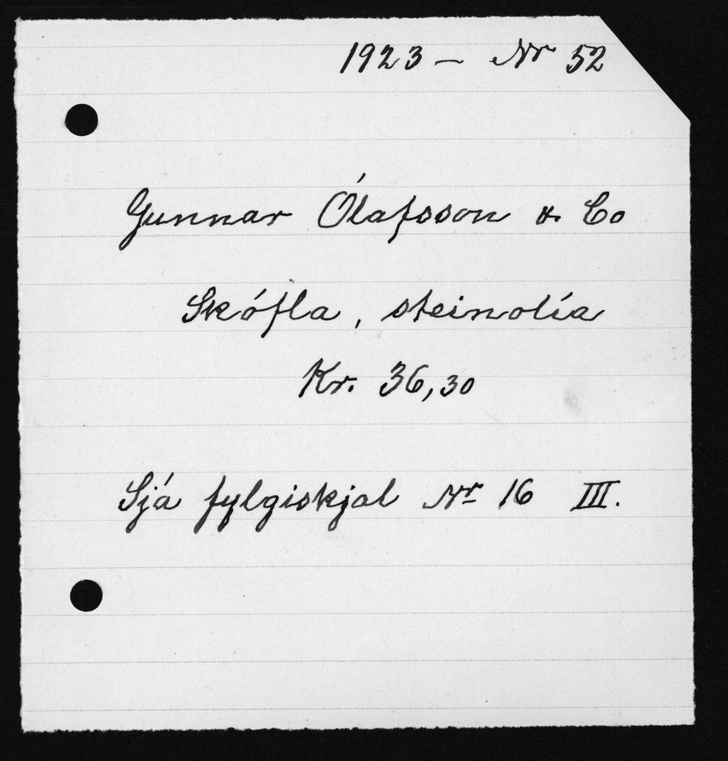 1923 – Nr 52
Gunnar Ólafsson & Co
Skófla, steinolía
Kr. 36,30
Sjá fylgiskjal Nr 16 III.